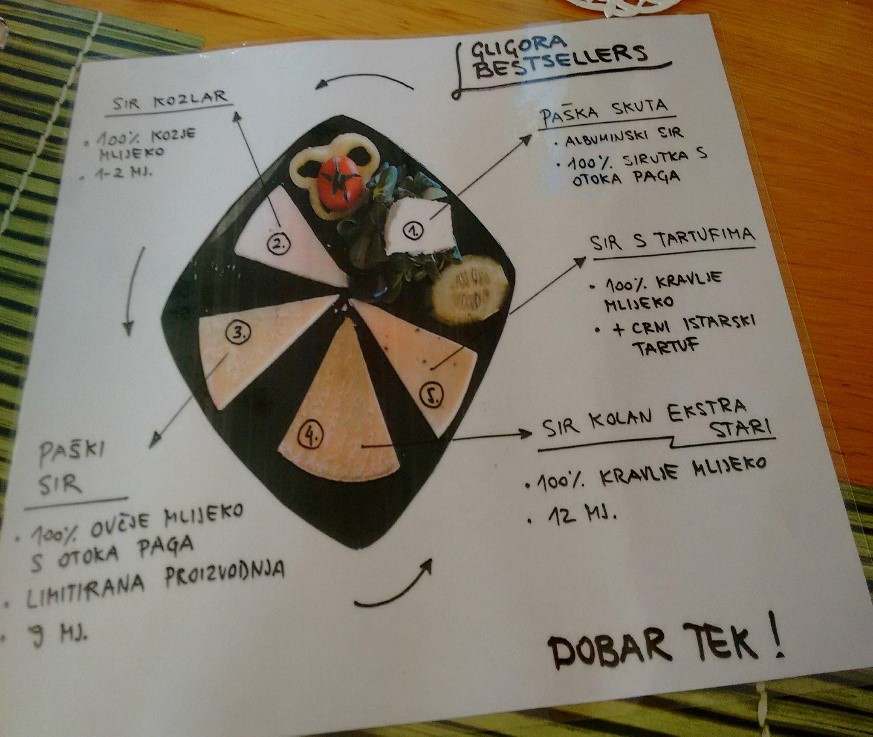 GLIGORA
BESTSELLERS
SIR KOZLAR
• 100% KOZJE
MLIJEKO
• 1-2 MJ.
PAŠKA SKUTA
• ALBUMINSKI SIR
• 100% SIRUTKA S
OTOKA PAGA
1.
2.
SIR S TARTUFIMA
• 100% KRAVLJE
MLIJEKO
• + CRNI ISTARSKI
TARTUF
3.
5.
4.
SIR KOLAN EKSTRA
STARI
• 100% KRAVLJE MLIJEKO
• 12 MJ.
PAŠKI
SIR
• 100% OVČJE MLIJEKO
S OTOKA PAGA
• LIMITIRANA PROIZVODNJA
• 9 MJ.
DOBAR TEK!